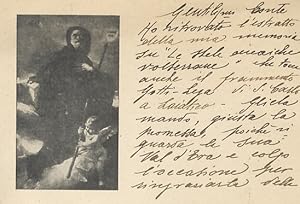 Gentilissmo Conte
Ho ritrovato l'estratto
della mia memoria
su "Stele arcaiche
volterrane" che tiene
anche il frammento
di S. Carlo
a Laiatico. Gliela
mando, giusta la
promessa, poiché ri
guarda la sua
Val d'Era e colgo
l'occasione per
ringraziarla delle